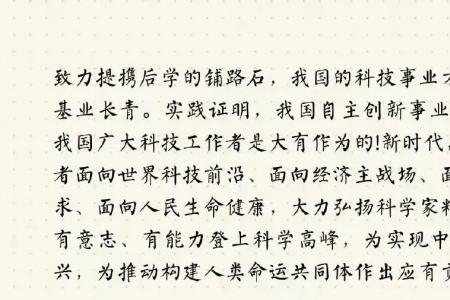 致力提携后学的铺路石，我国的科技事业才
基业长青。实践证明，我国自主创新事业
我国广大科技工作者是大有作为的!新时代，
者面向世界科技前沿、面向经济主战场、面
求、面向人民生命健康，大力弘扬科学家精
有意志、有能力登上科学高峰，为实现中
兴，为推动构建人类命运共同体作出应有贡